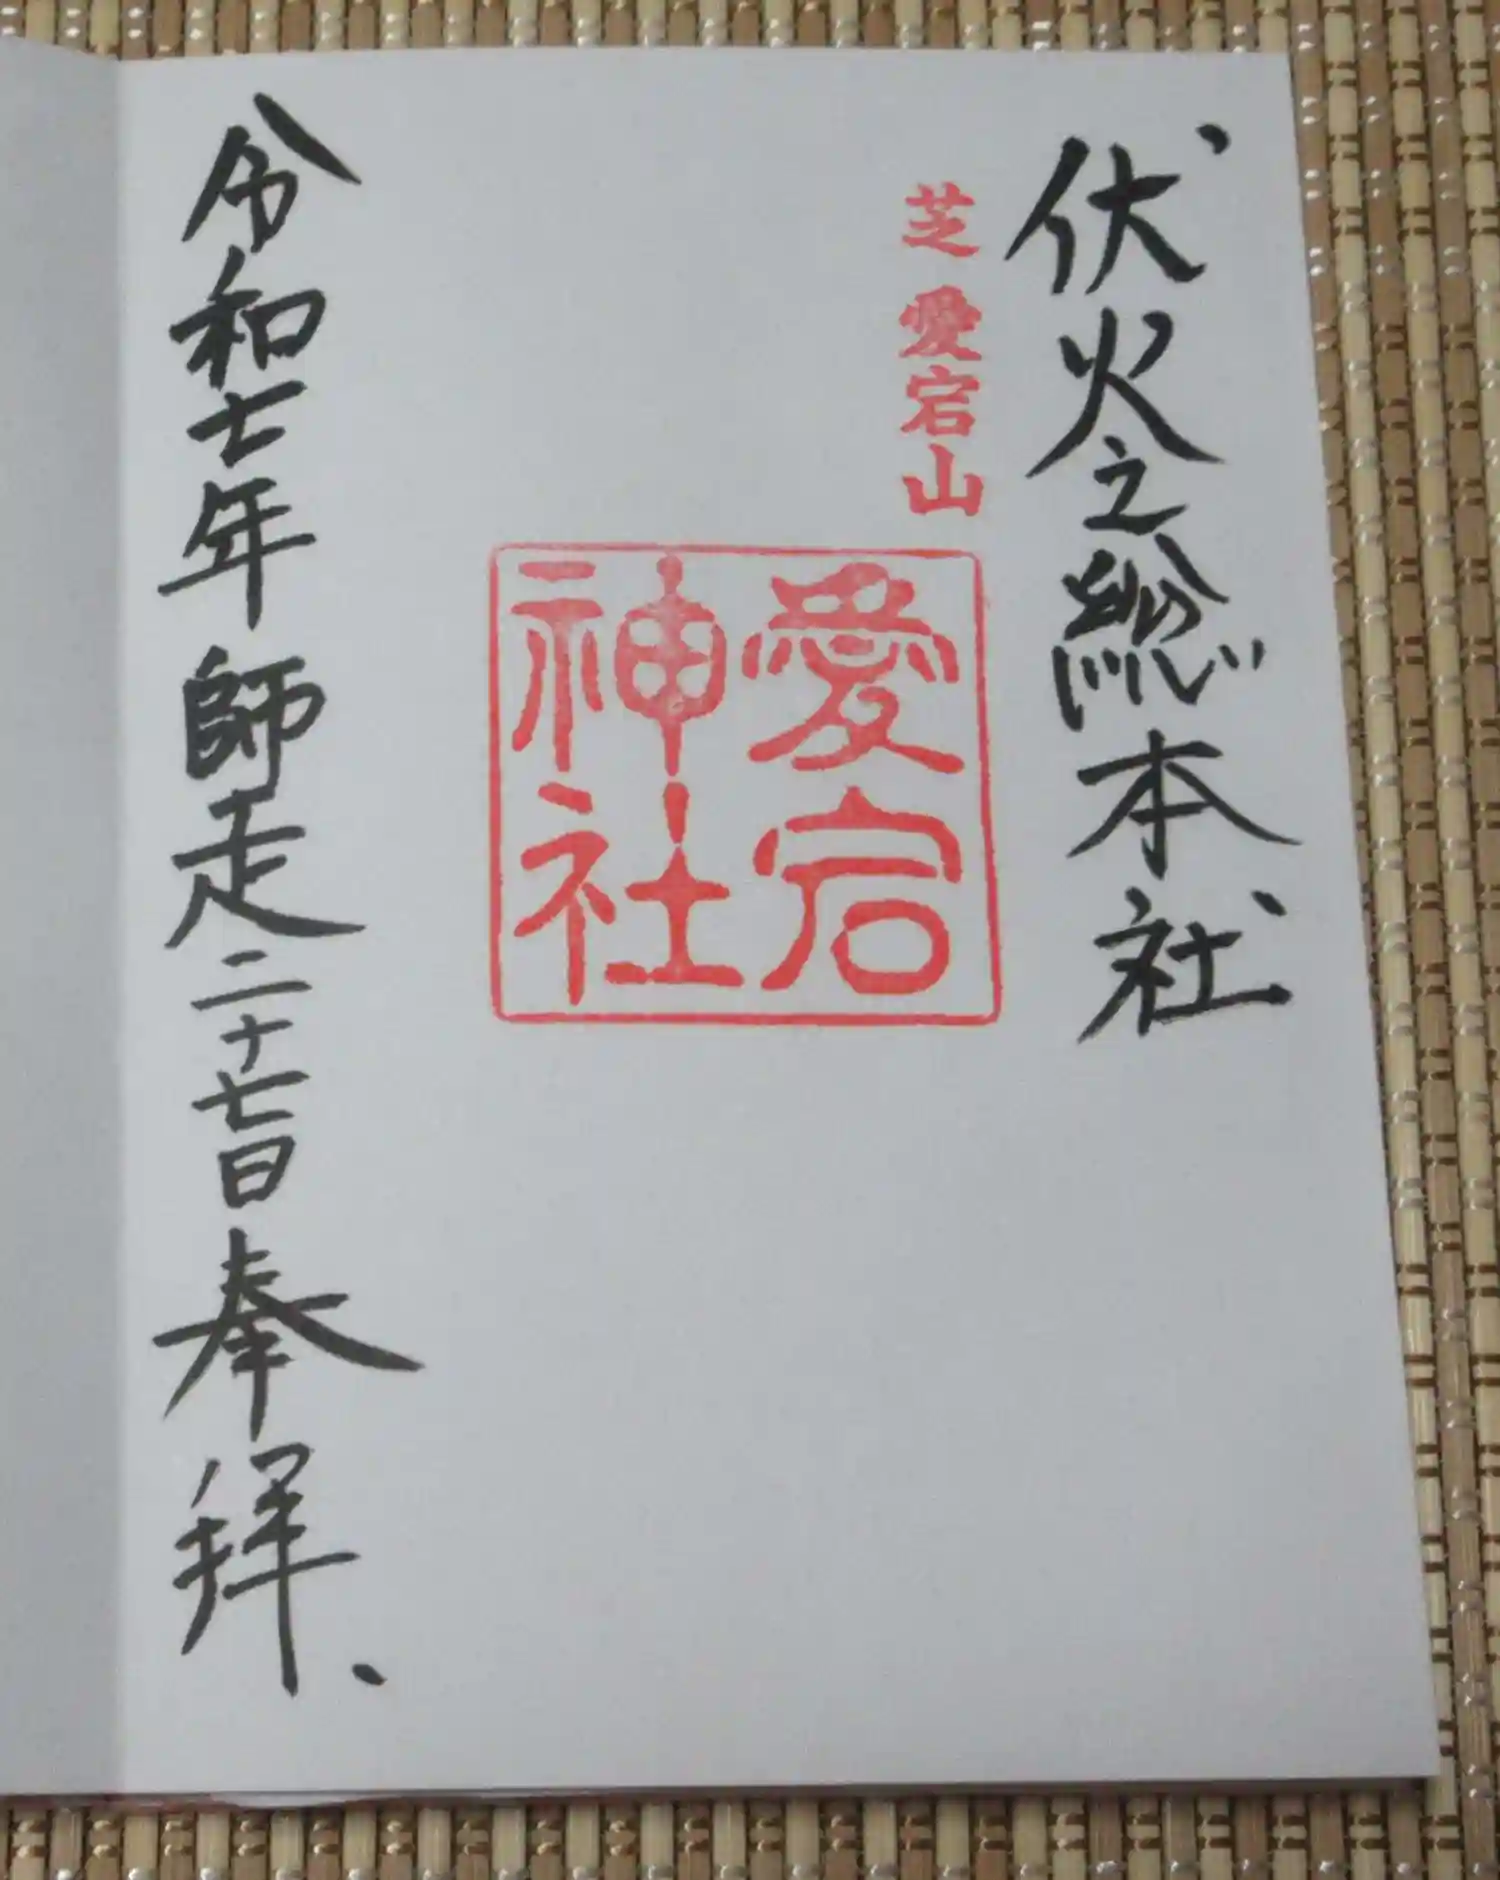 伏火之総本社
芝 愛宕山
愛宕
神社
令和七年師走二十七日奉拝